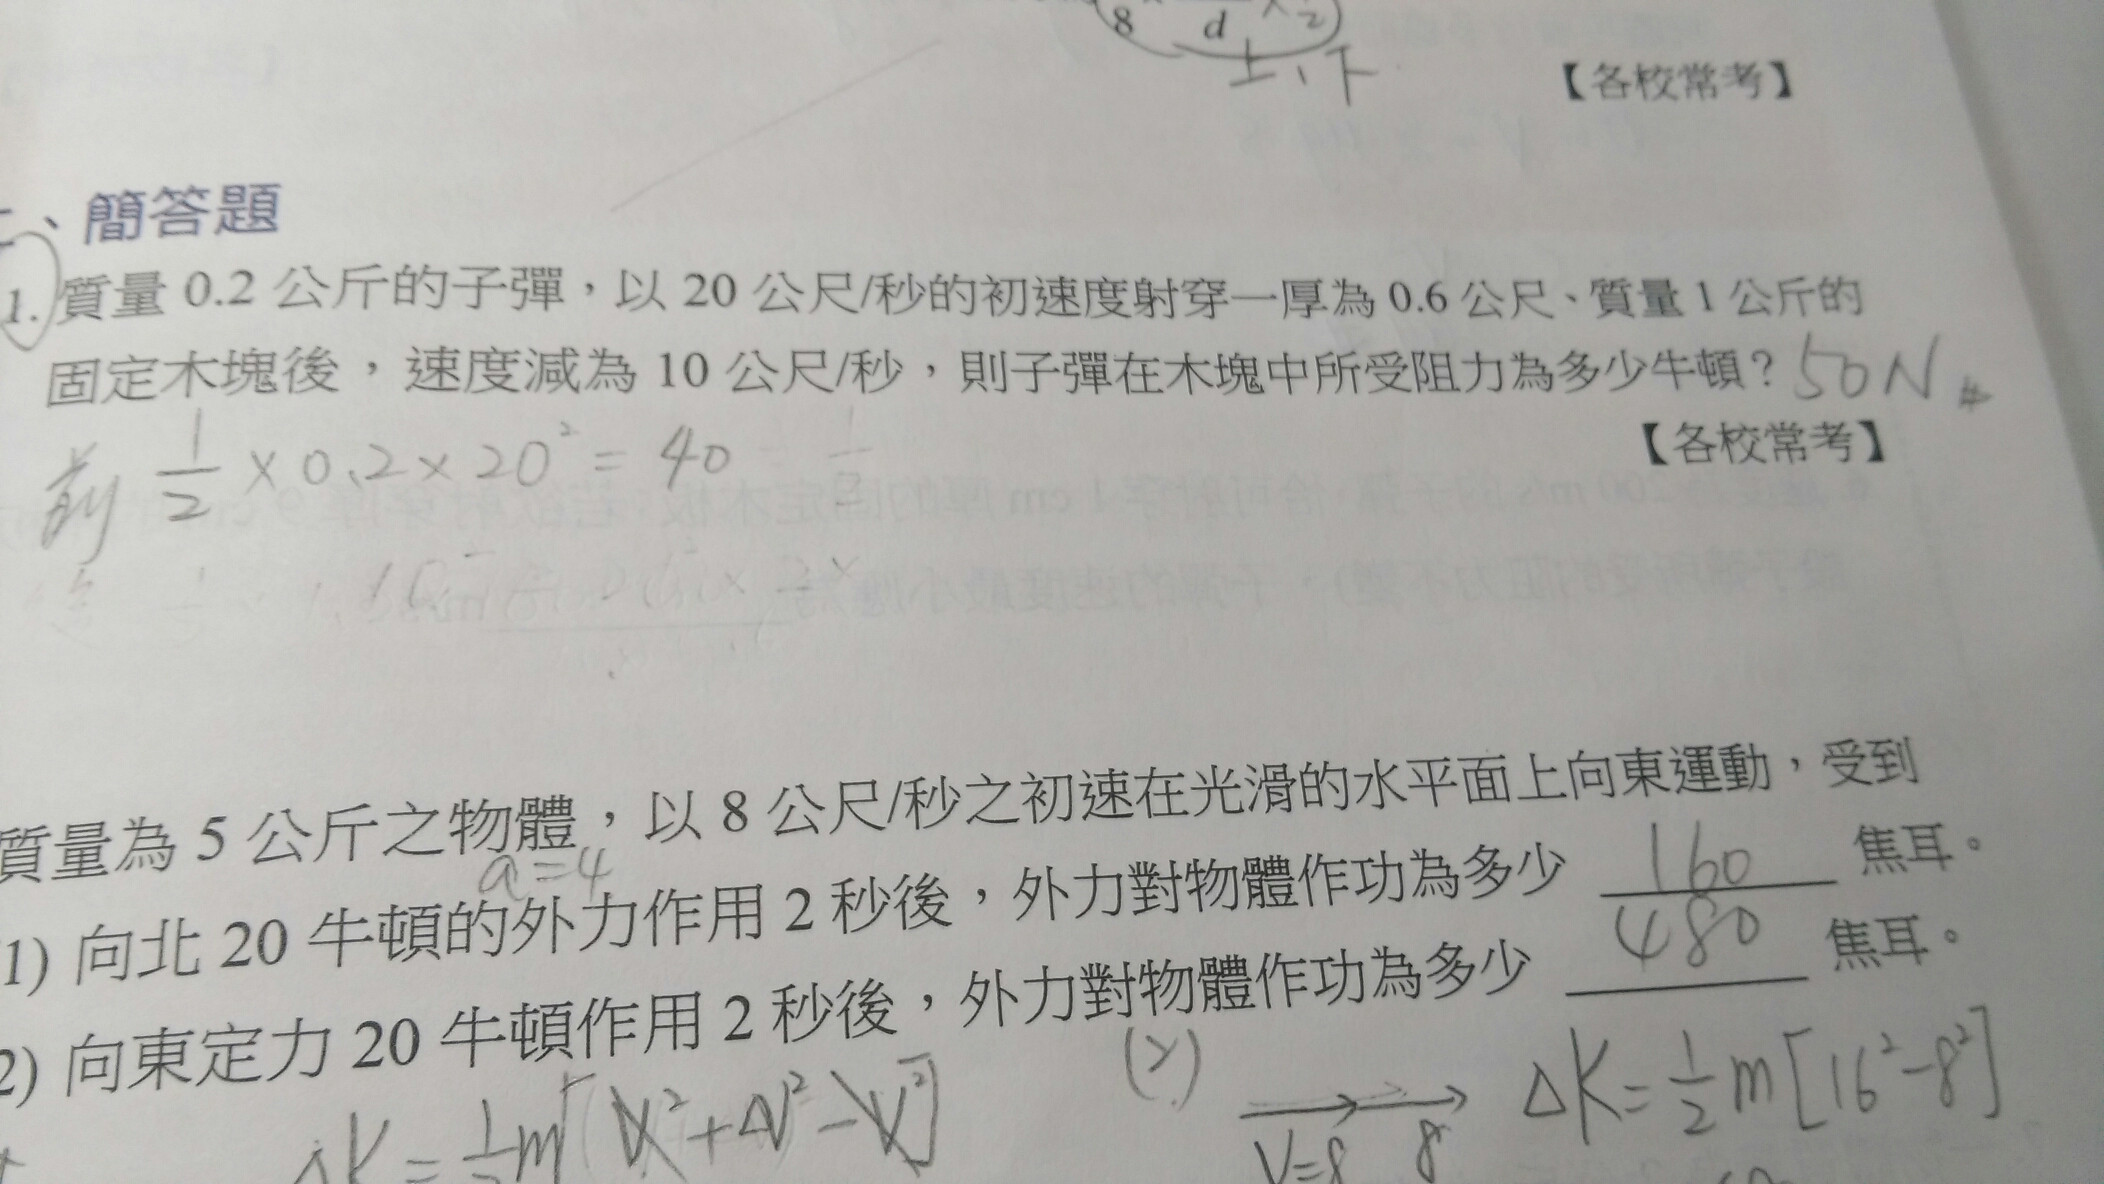 8 d × 1/2
上、下
【各校常考】
二、簡答題
1. 質量 0.2 公斤的子彈，以 20 公尺/秒的初速度射穿一厚為 0.6 公尺、質量 1 公斤的
固定木塊後，速度減為 10 公尺/秒，則子彈在木塊中所受阻力為多少牛頓？ 50N
【各校常考】
前 1/2 × 0.2 × 20² = 40
質量為 5 公斤之物體，以 8 公尺/秒之初速在光滑的水平面上向東運動，受到
a=4
1) 向北 20 牛頓的外力作用 2 秒後，外力對物體作功為多少 160 焦耳。
2) 向東定力 20 牛頓作用 2 秒後，外力對物體作功為多少 480 焦耳。
ΔK = 1/2 m [V² + ΔV² − V²]
(2)
V=8 8
ΔK = 1/2 m [16² − 8²]